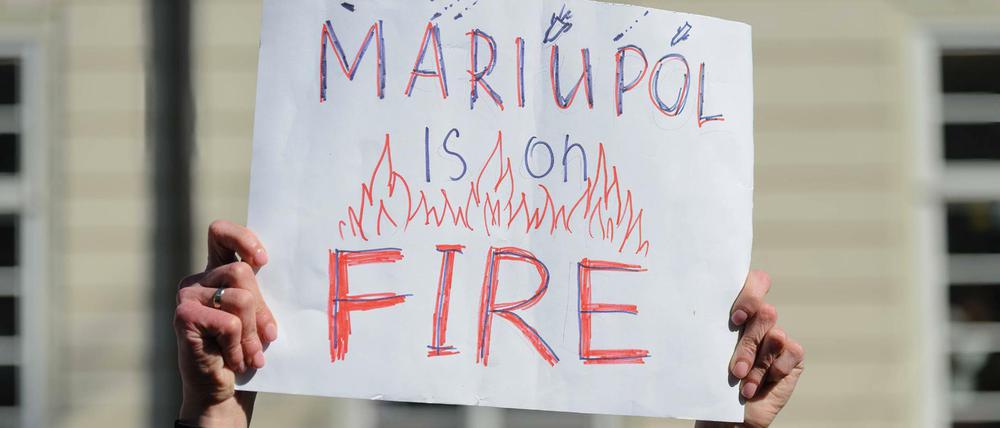 MARIUPOL
IS on
FIRE